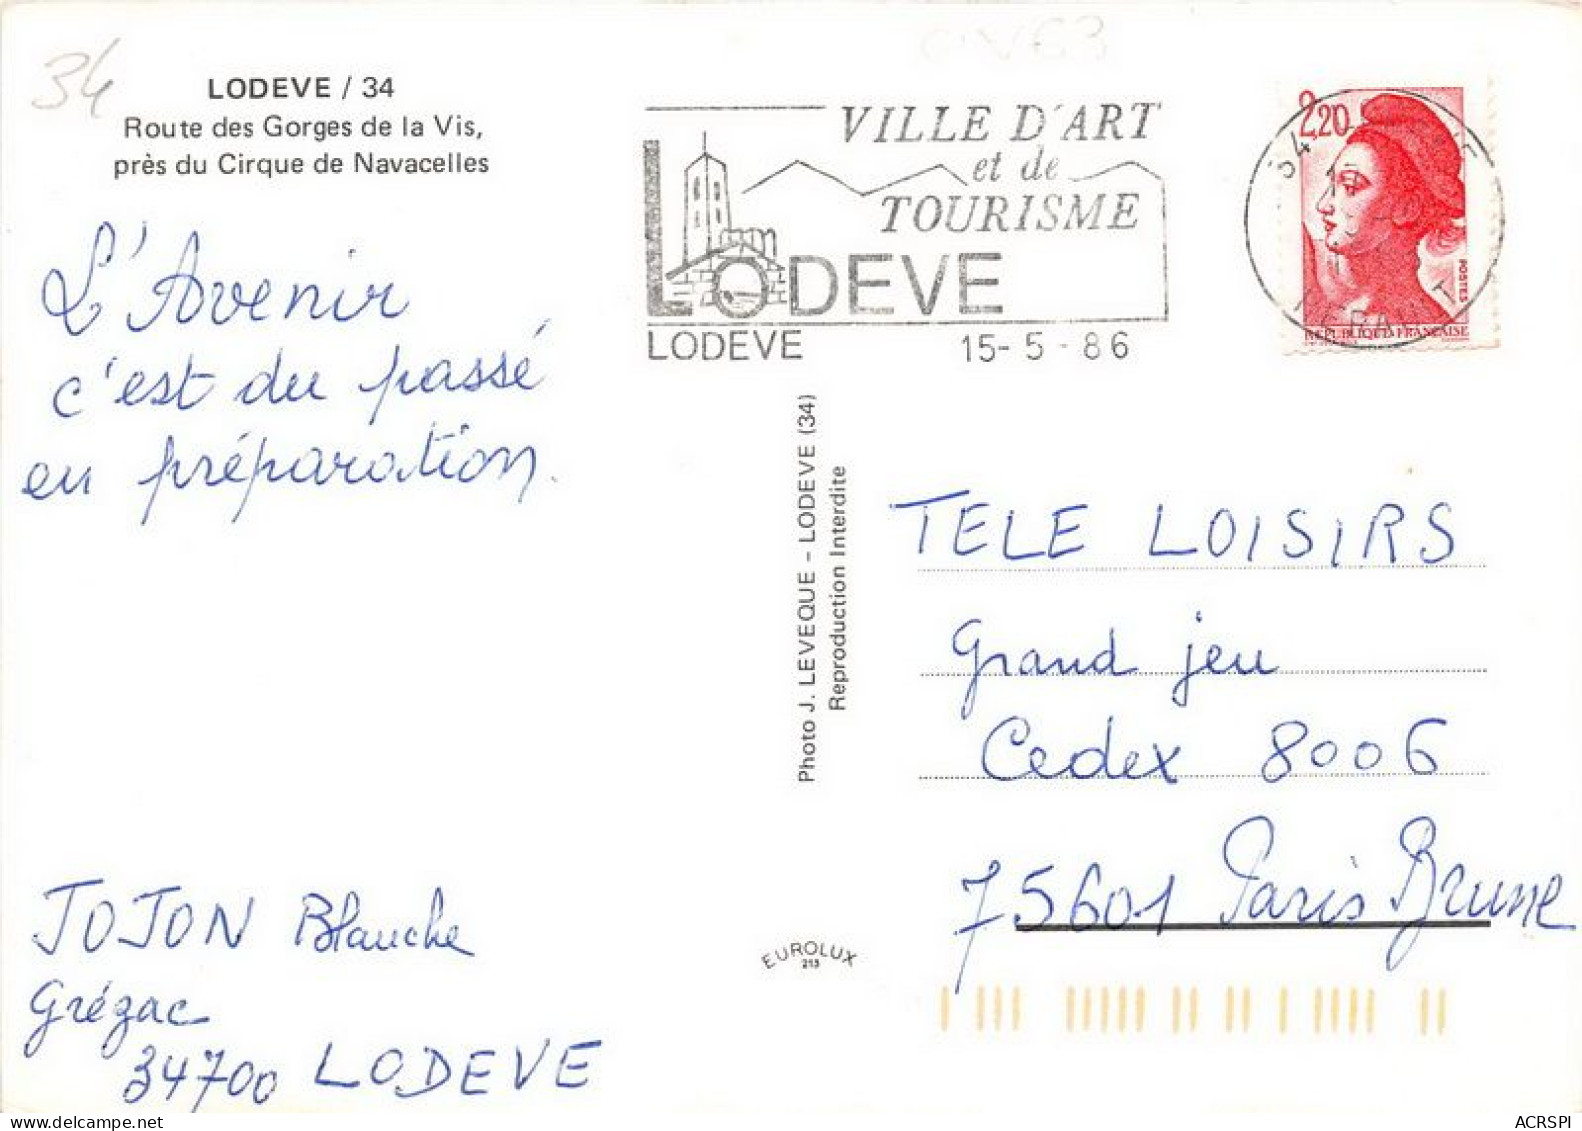 34
LODEVE / 34
Route des Gorges de la Vis,
près du Cirque de Navacelles
L'Avenir
c'est du passé
en préparation.
JOJON Blanche
Grézac
34700 LODEVE
VILLE D'ART
et de
TOURISME
LODEVE
LODEVE
15-5-86
2,20
POSTES
REPUBLIQUE FRANÇAISE
Photo J. LEVEQUE – LODEVE (34)
Reproduction Interdite
EUROLUX
213
TELE LOISIRS
Grand jeu
Cedex 8006
75601 Paris Brune
ACRSPI